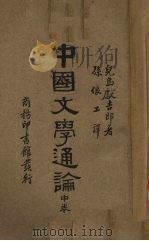 兒島獻吉郎著
孫俍工譯
中國文學通論 中卷
商務印書館發行